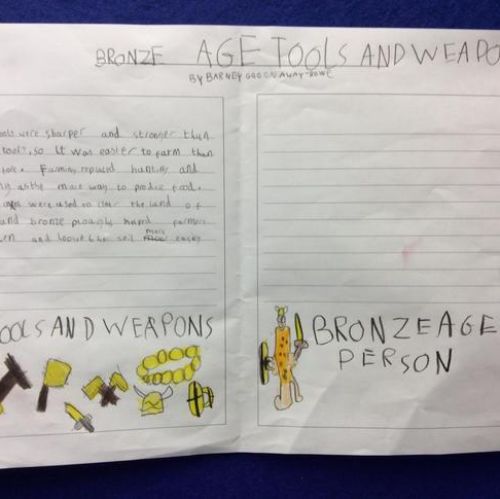 BRONZE AGE TOOLS AND WEAPO
BY BARNEY
were sharper and stronger than
tools, so it was easier to farm than
Farming replaced hunting and
as the main way to produce food.
were used to clear the land of
and bronze ploughs farmers
and the soil more easily
OOLS AND WEAPONS
BRONZE AGE
PERSON